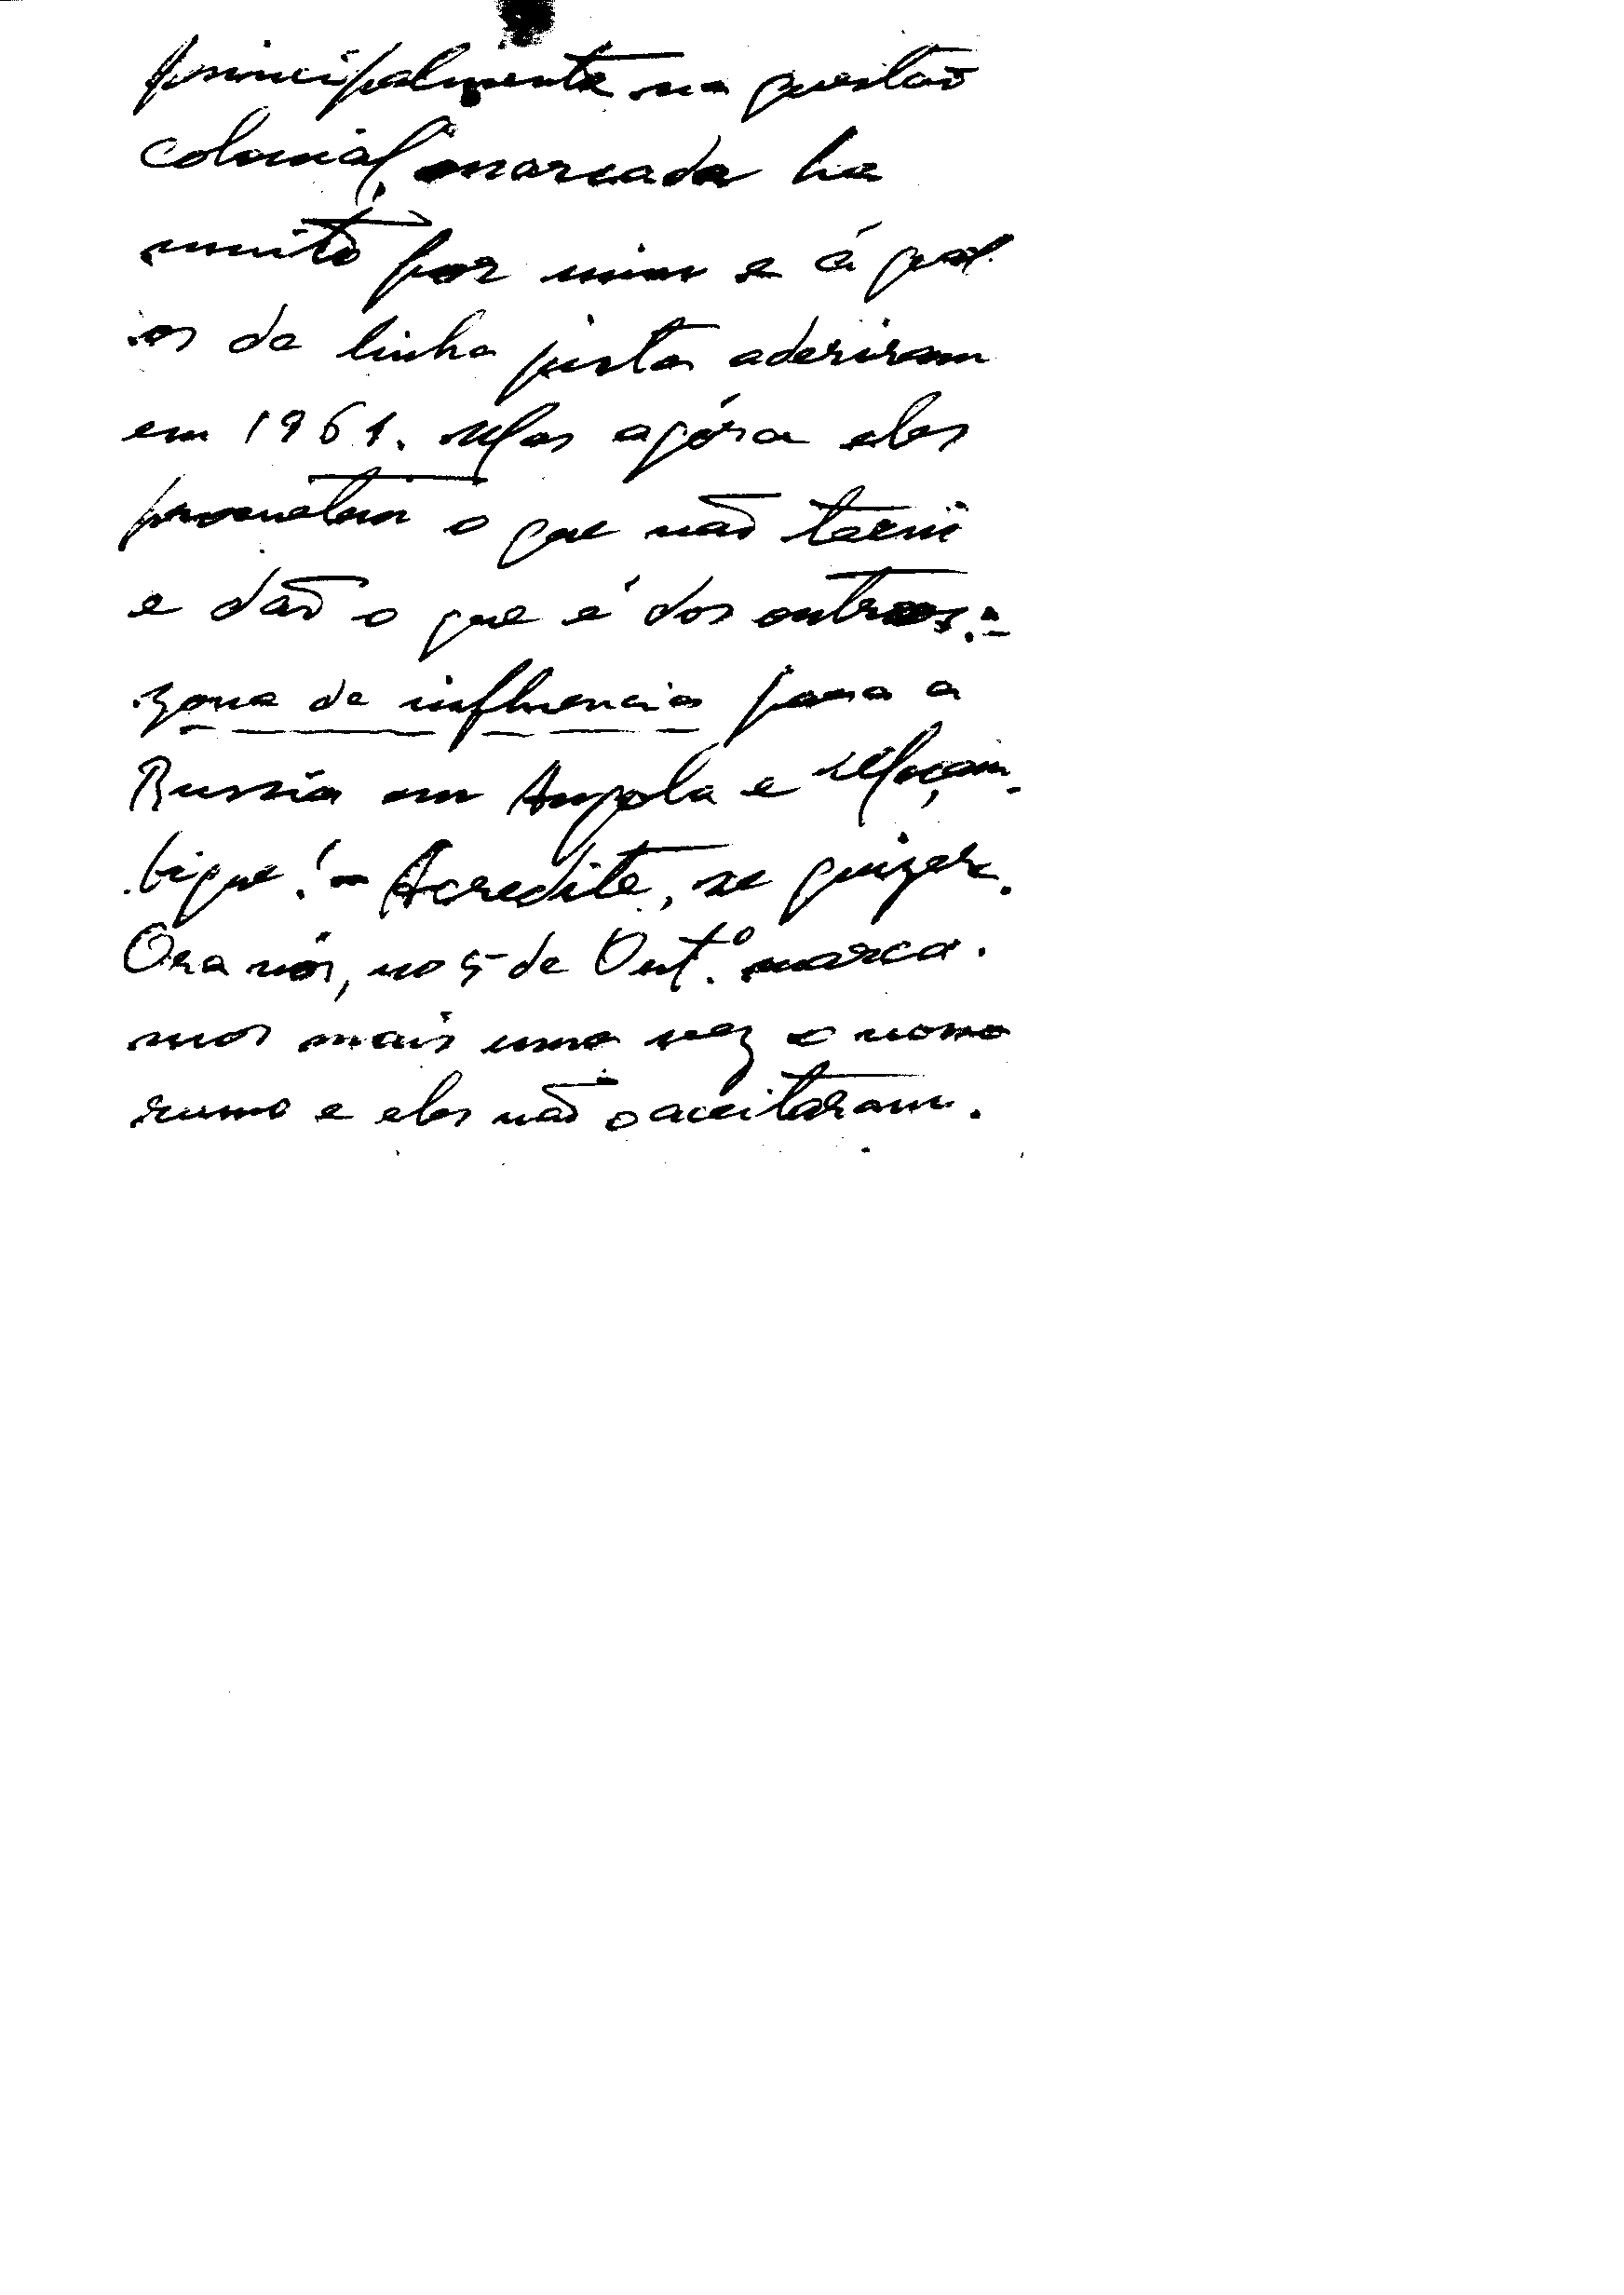 principalmente na questão
colonial, marcada ha
muito por mim e á qual
os da linha justa aderiram
em 1961. Mas agóra eles
prometem o que não teem
e dão o que é dos outros:-
zona de influencia para a
Russia em Angola e Moçam-
bique! - Acredite, se quizer.
Ora nós, no 5 de Out.º marca-
mos mais uma vez o nosso
rumo e eles não o aceitaram.